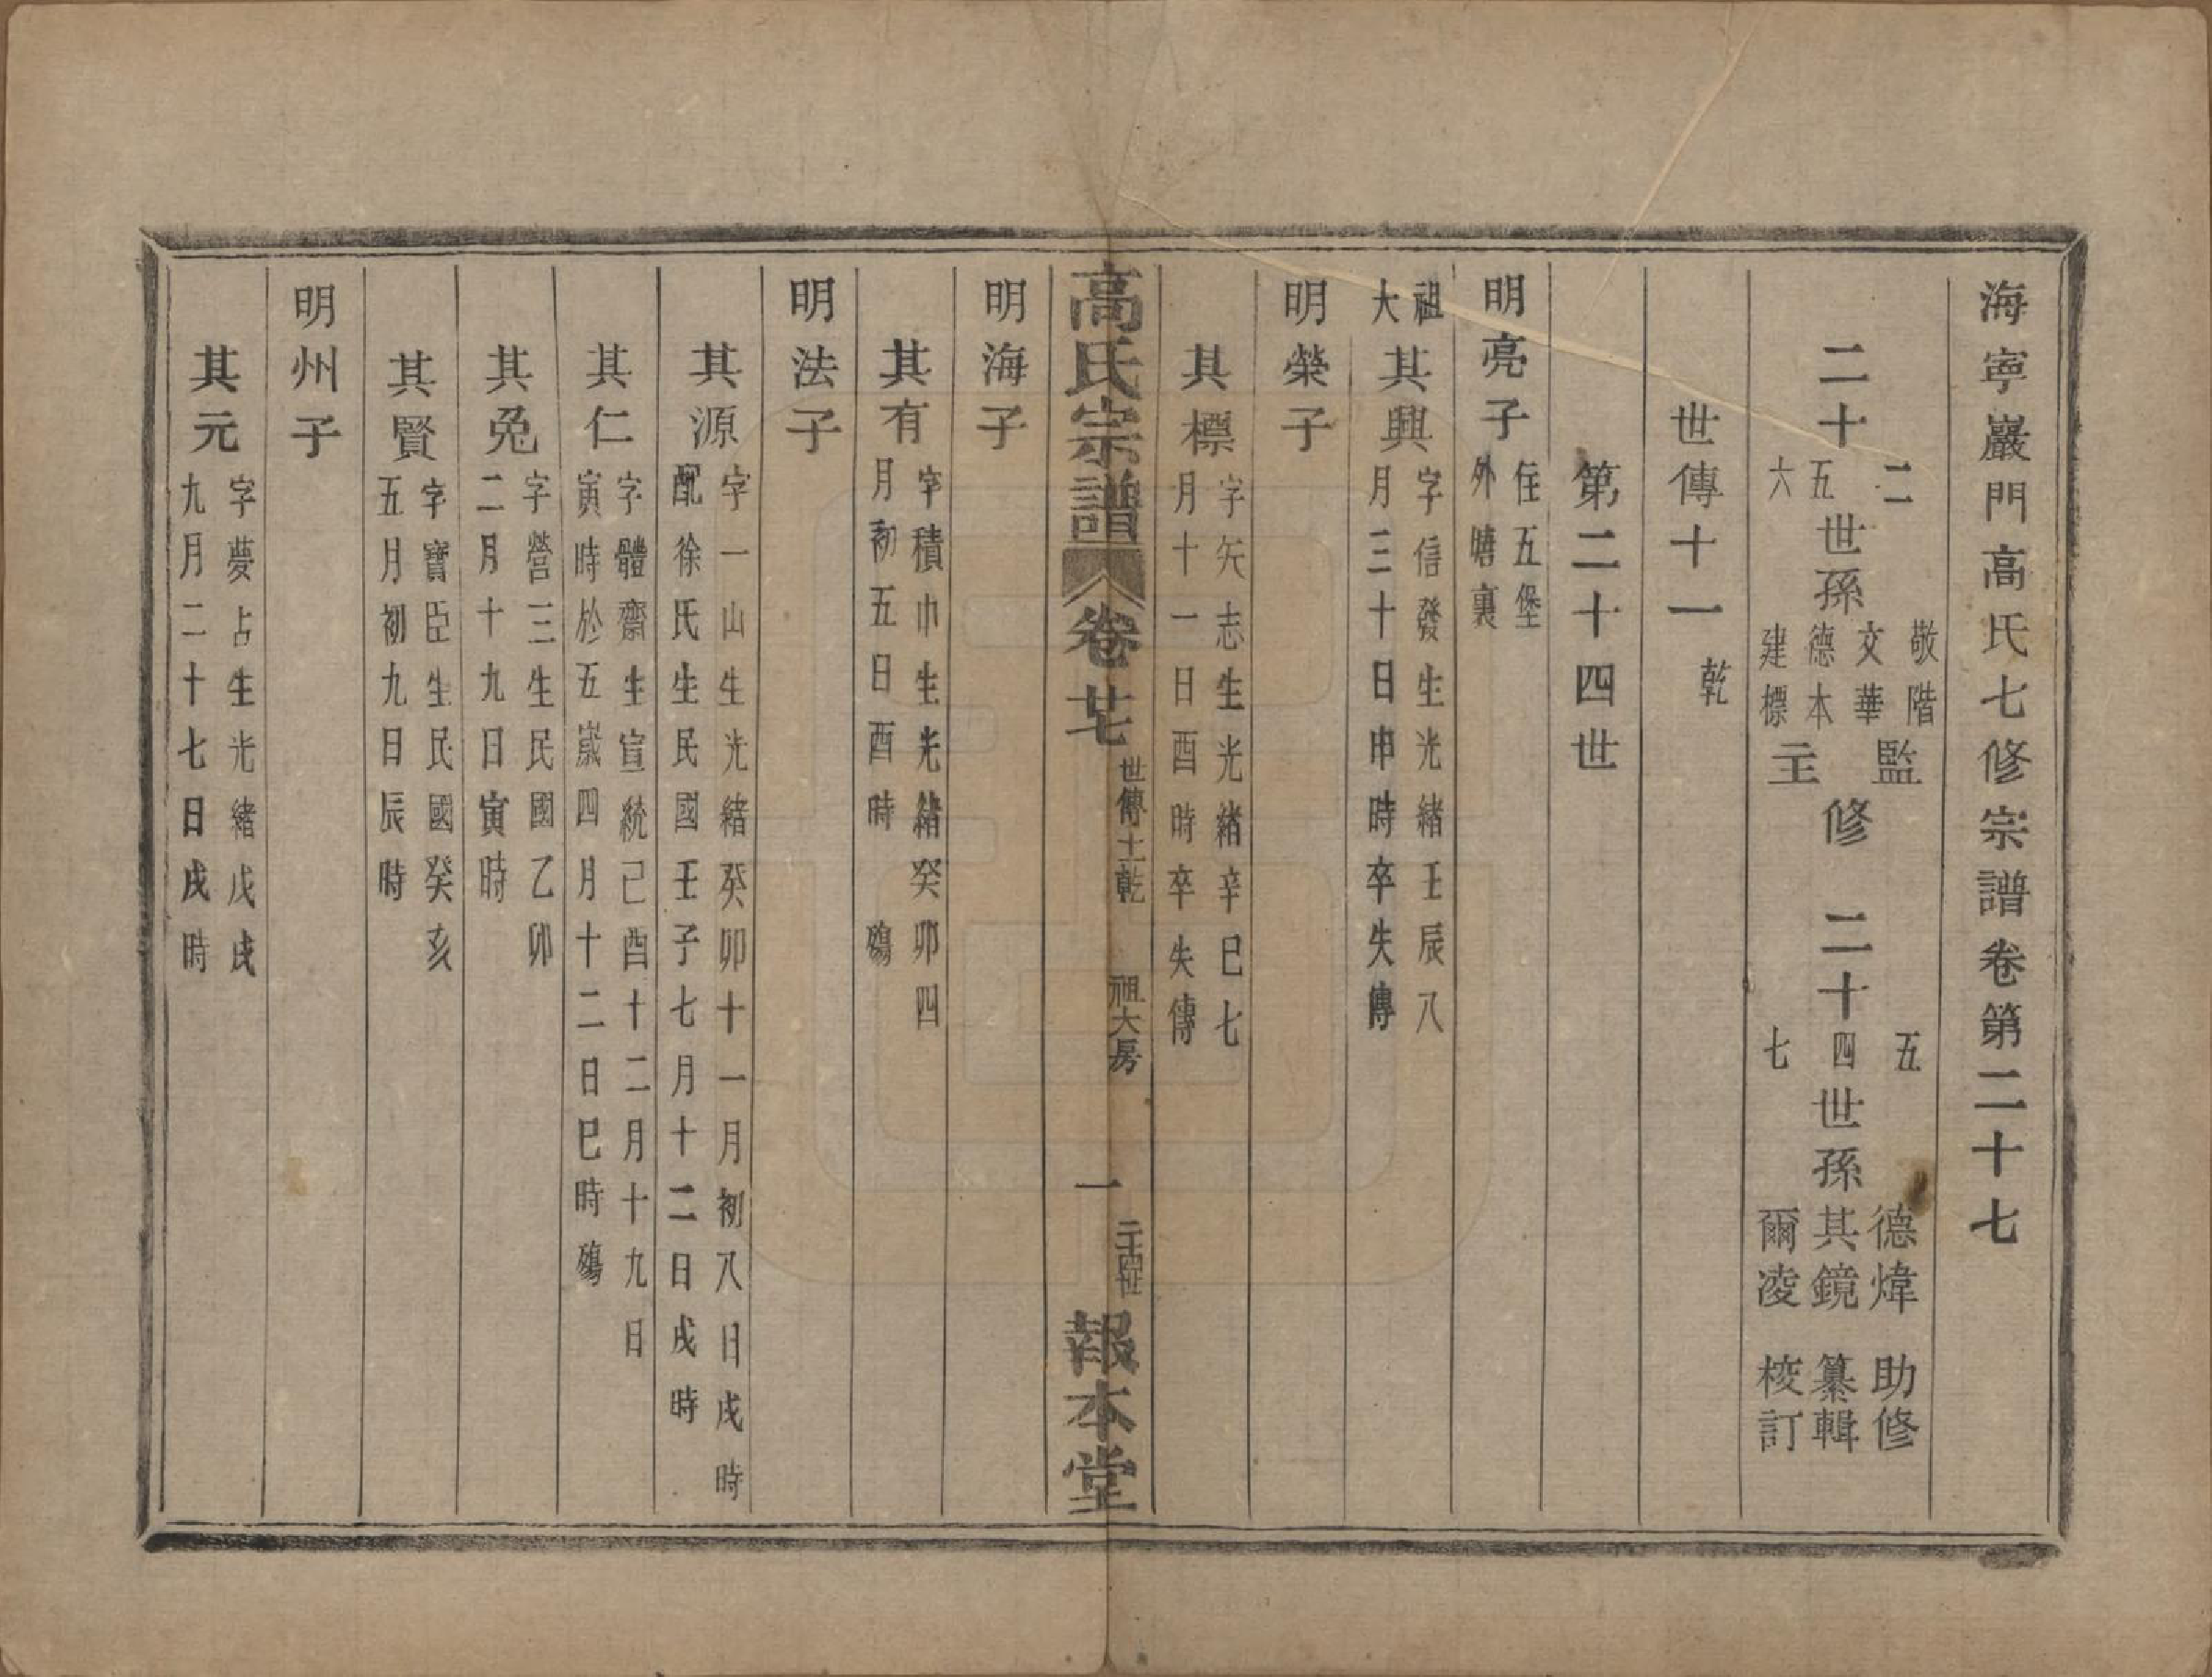 海寧巖門高氏七修宗譜卷第二十七
二十二五六世孫敬階文華德本建標監主修
二十五四七世孫德煒其鏡爾凌助修纂輯校訂
世傳十一乾
第二十四世
明亮子住五堡外塘裏
祖大
其興字信發生光緒壬辰八月三十日申時卒失傳
明榮子
其標字矢志生光緒辛巳七月十一日酉時卒失傳
高氏宗譜卷廿七世傳十一乾祖大房一二十四世報本堂
明海子
其有字積巾生光緒癸卯四月初五日酉時殤
明法子
其源字一山生光緒癸卯十一月初八日戌時配徐氏生民國壬子七月十二日戌時
其仁字體齋生宣統己酉十二月十九日寅時於五歲四月十二日巳時殤
其兔字營三生民國乙卯二月十九日寅時
其賢字寶臣生民國癸亥五月初九日辰時
明州子
其元字夢占生光緒戊戌九月二十七日戌時